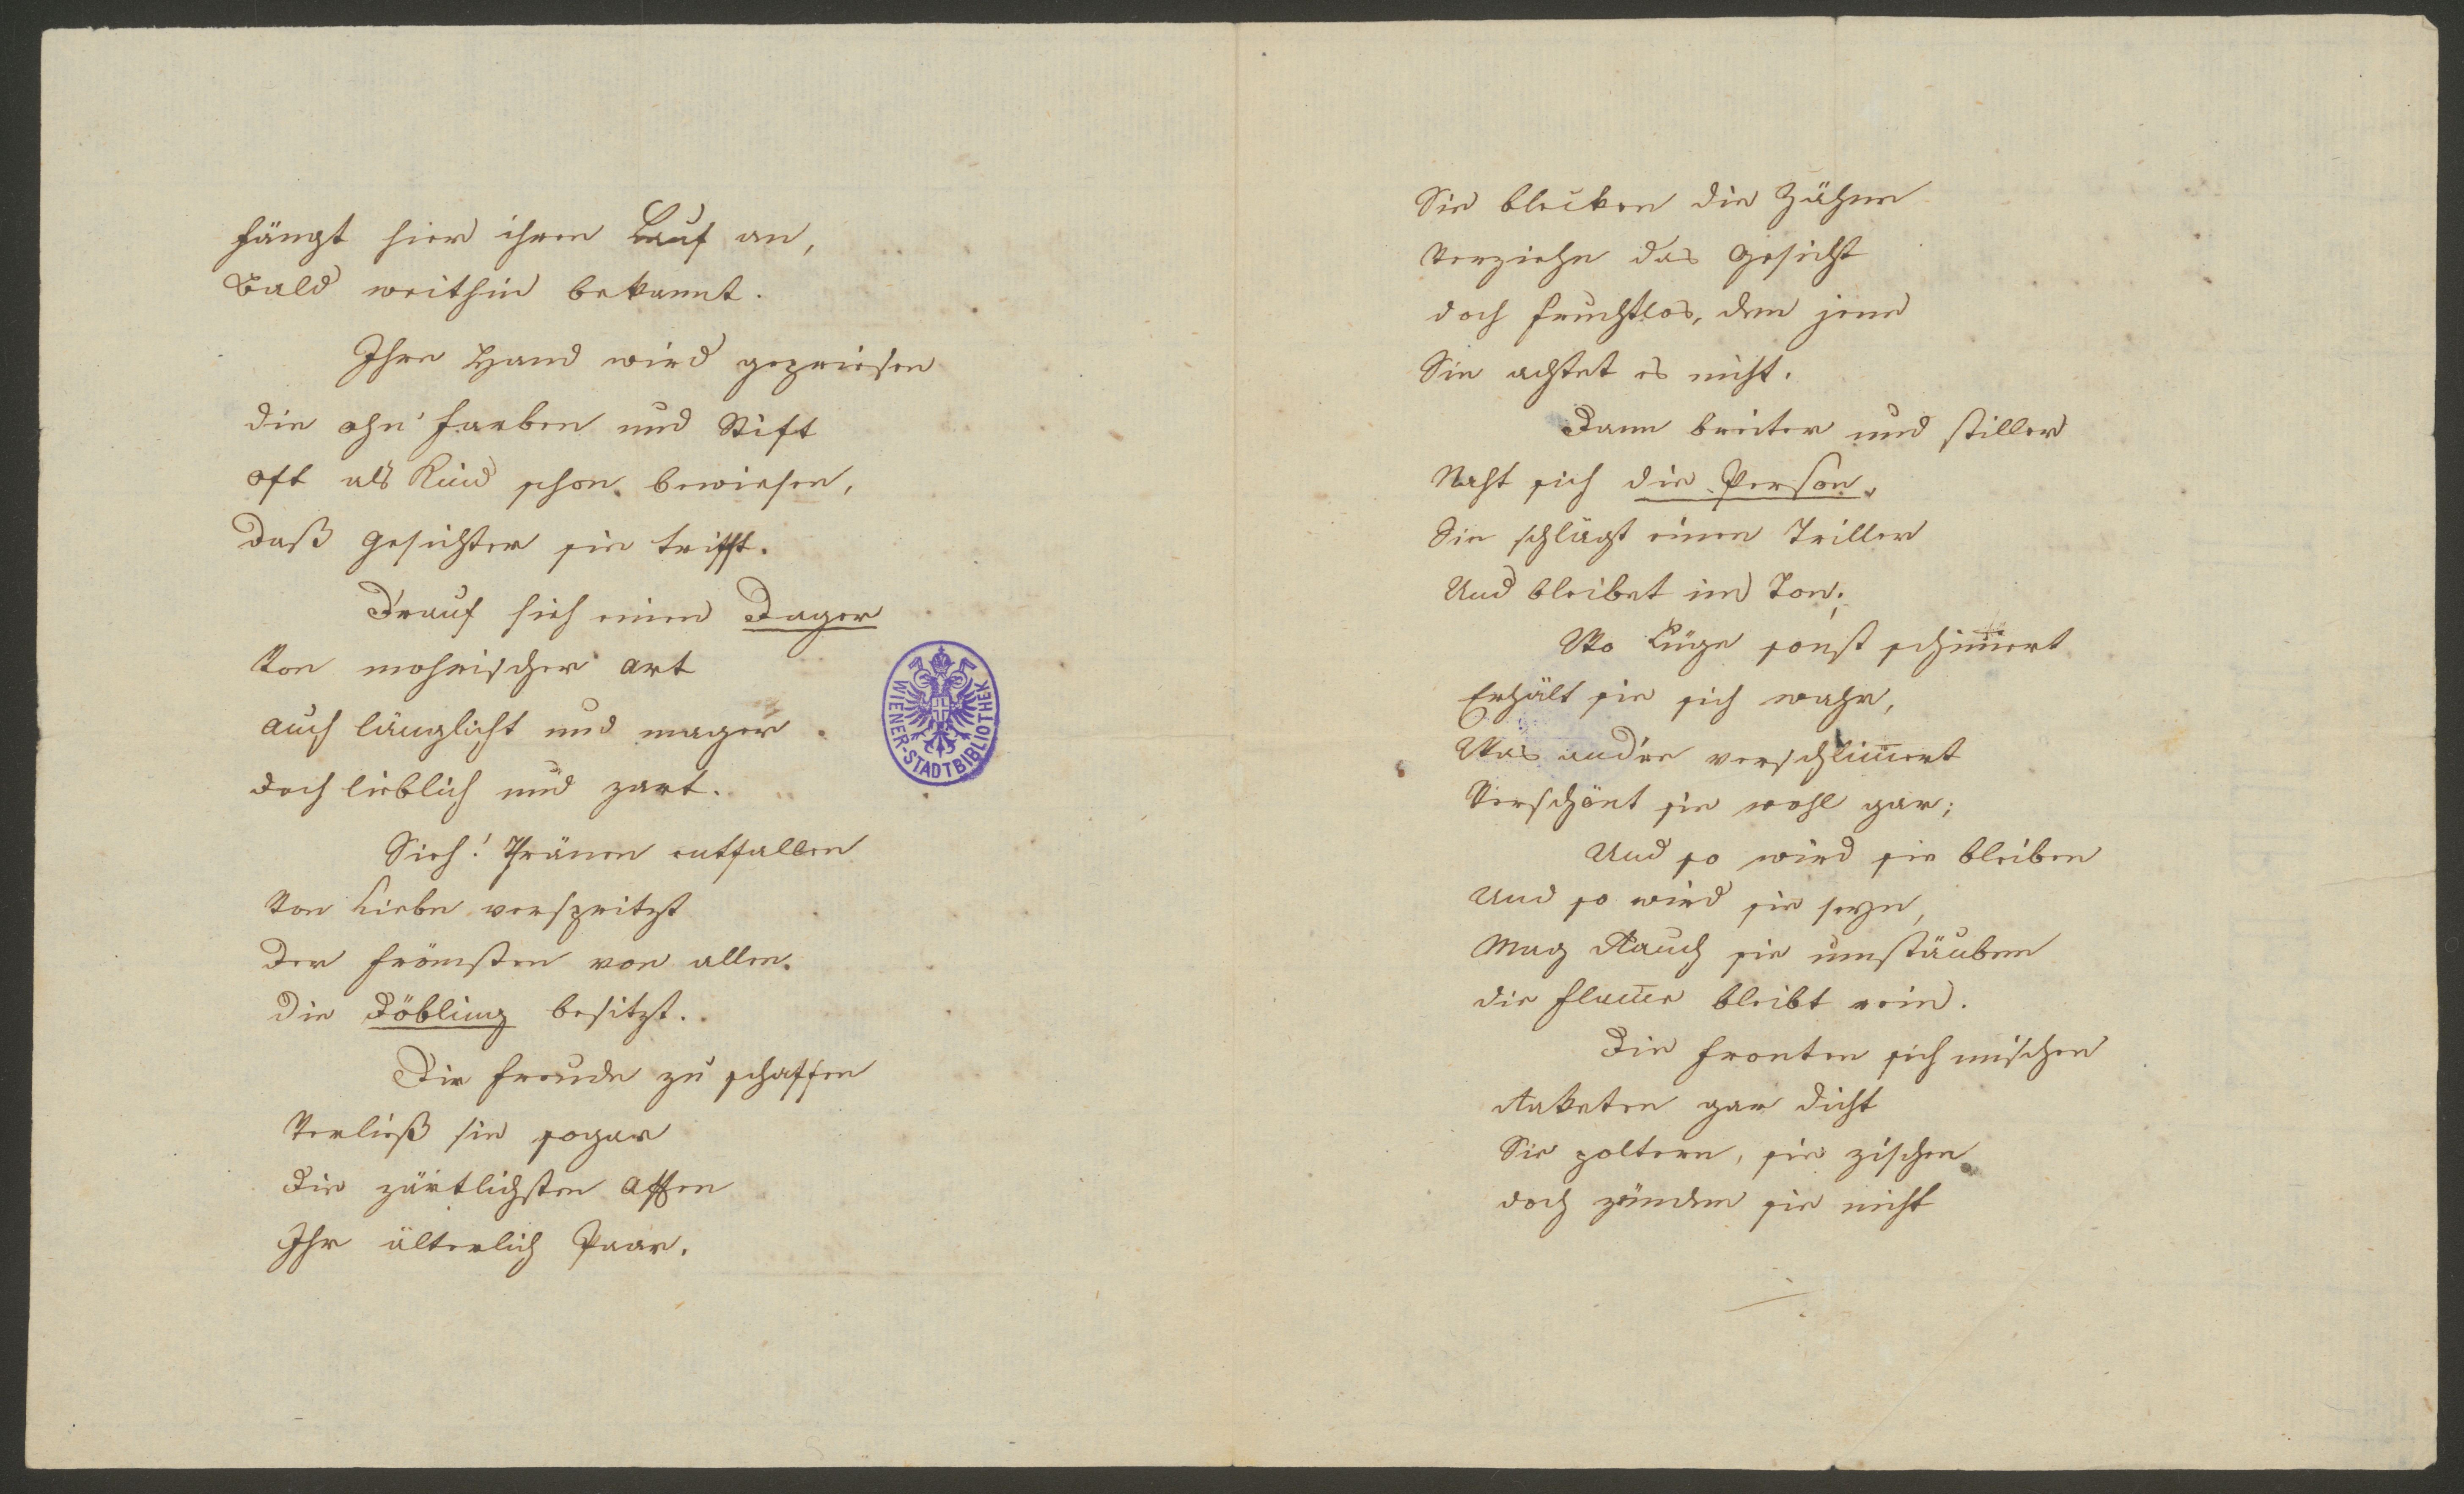 fängt hier ihren Lauf an,
Bald weithin bekannt.
Ihre Hand wird gepriesen
die ohn' Farben und Stift
oft als Kind schon bewiesen,
daß Gesichter sie trifft.
D'rauf sieh einen Dager
Von mohrischer Art
auch länglicht und mager
doch lieblich und zart.
Sieh! Thränen entfallen
Von Liebe verspritzt
der frömsten von allen.
die Döbling besitzt.
Dir Freude zu schaffen
Verließ sie sogar
Die zärtlichsten Affen
Ihr älterlich Paar.
WIENER-STADTBIBLIOTHEK
Sie blecken die Zähne
Verziehn das Gesicht
doch fruchtlos, denn jene
Sie achtet es nicht.
Dann breiter und stiller
Naht sich die Person,
Sie schlägt einen Triller
Und bleibet im Ton;
Wo Lüge sonst schim̅ert
Erhält sie sich wahr,
Was and're verschlim̅ert
Verschönt sie wohl gar;
Und so wird sie bleiben
Und so wird sie seyn,
Mag Rauch sie umstäuben
die Flam̅e bleibt rein.
Die Fronten sich mischen
Raketen gar dicht
Sie poltern, sie zischen
doch zünden sie nicht